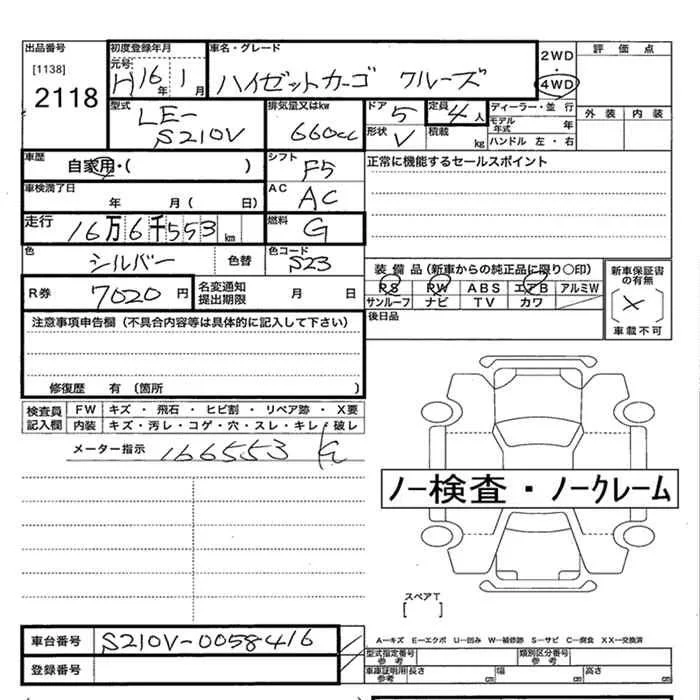 出品番号 初度登録年月 車名・グレード 2WD・4WD 評価点
[1138] 元号
2118 H16年1月 ハイゼットカーゴ クルーズ
外装 内装
型式 排気量又はkw ドア 定員 ディーラー・並行
LE-S210V 660cc 5 4人 モデル年式 年
形状 V 積載 kg ハンドル 左・右
車歴 シフト 正常に機能するセールスポイント
自家用・( ) F5
車検満了日 AC
年 月( 日) AC
走行 燃料
16万6千553km G
色 色コード
シルバー 色替 S23
装備品(新車からの純正品に限り○印) 新車保証書の有無
R券 7020円 名変通知提出期限 月 日
PS PW ABS エアB アルミW
サンルーフ ナビ TV カワ
[×]
車載不可
後日品
注意事項申告欄(不具合内容等は具体的に記入して下さい)
修復歴 有(箇所 )
検査員記入欄 FW キズ・飛石・ヒビ割・リペア跡・X要
内装 キズ・汚レ・コゲ・穴・スレ・キレ・破レ
メーター指示 166553 k
ノー検査・ノークレーム
スペアT
[ ]
車台番号 S210V-0058416
登録番号
A−キズ E−エクボ U−凹み W−補修跡 S−サビ C−腐食 XX−交換済
型式指定番号 参考 類別区分番号 参考
車庫証明用 参考 長さ cm 幅 cm 高さ cm